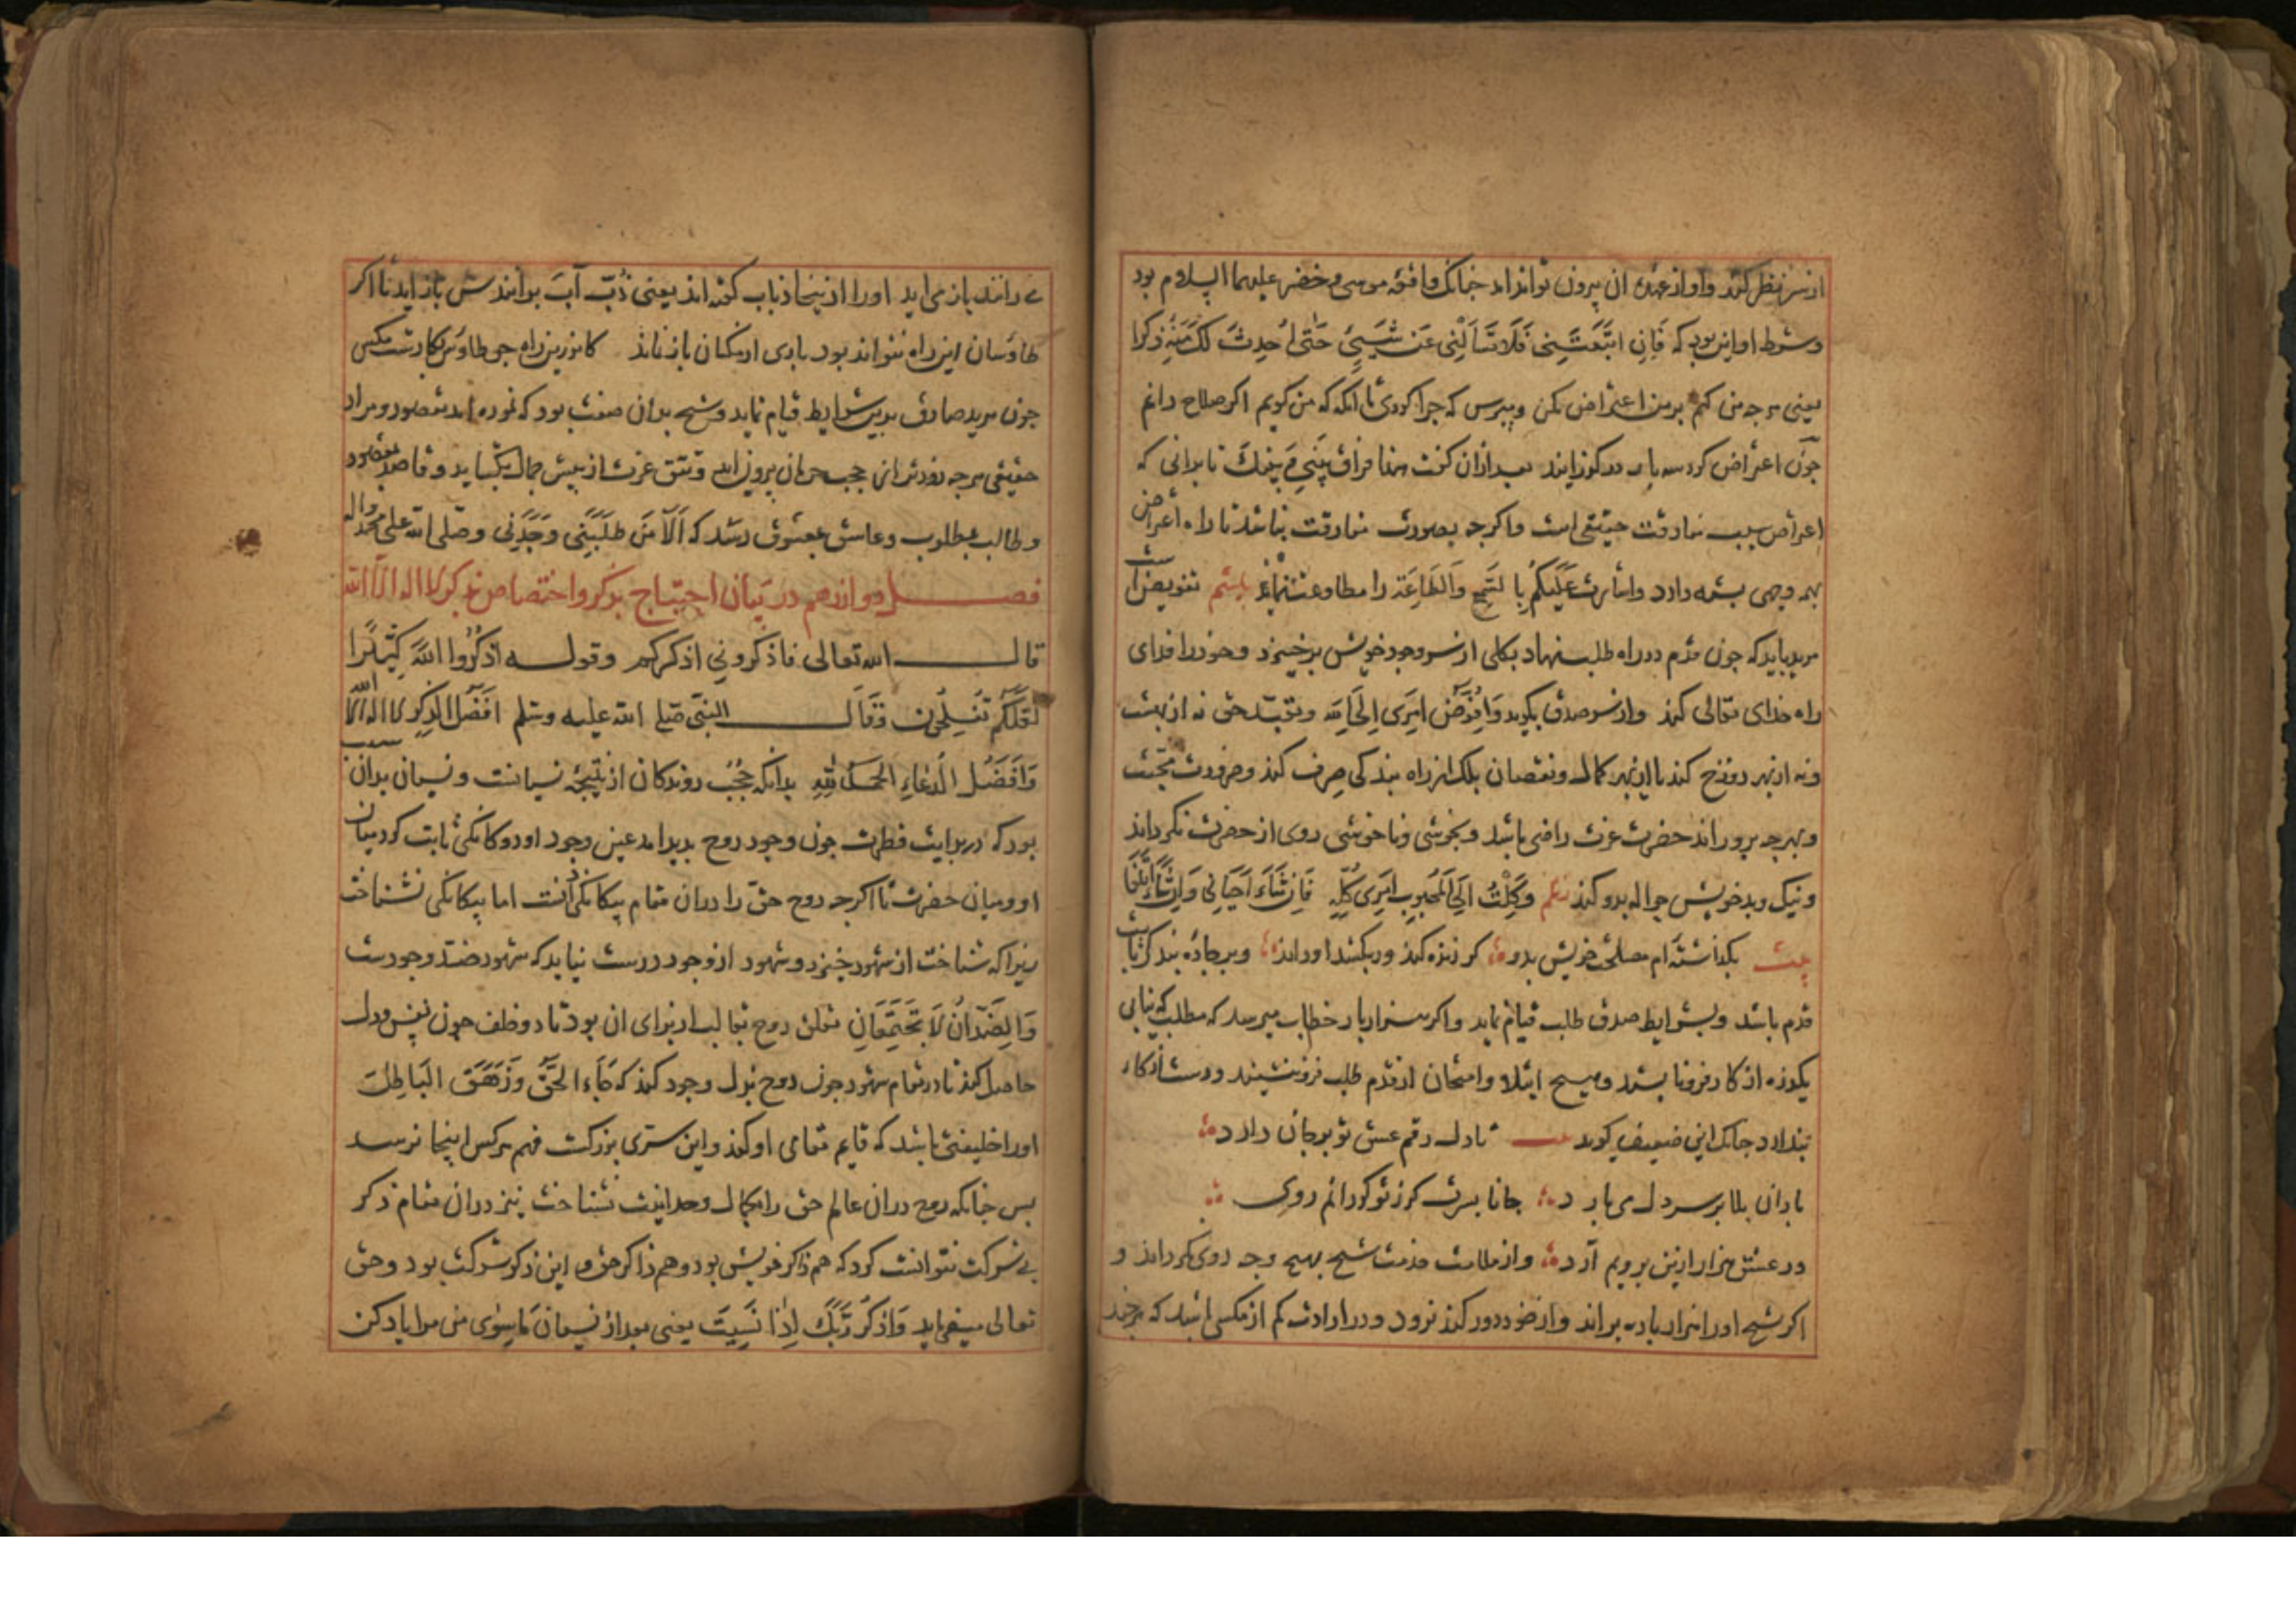 از سر نظر کند واو از عهده ان بیرون تواند امد جنانک واقعه موسی وخضر علیهما السلام بود
وشرط او این بود که فَاِنِ اتَّبَعْتَنِی فَلَا تَسْاَلْنِی عَن شَیْیٍٔ حَتّی اُحْدِثَ لَکَ مِنْهُ ذکرا
یعنی هرجه من کنم برمن اعتراض مکن ومپرس که جرا کردی تا انکه که من کویم اکر صلاح دانم
جون اعتراض کرد سه بار در کوزانید بعد ازان کفت هذا فراق بَیْنِی وَ بَیْنِکَ تا بدانی که
اعتراض سبب مفارقت حقیقی است واکرجه بصورت مفارقت نباشد تا راه اعتراض
بهمه وجهی بسته دارد واشارت عَلَیْکُمْ بِالسَّمْعِ وَالطَّاعَة را مطاوعت نماید بیستم تفویض است
مرید باید که جون قدم در راه طلب نهاد بکلی از سر وجود خویش برخیزد وخود را فدای
راه خدای تعالی کند واز سر صدق بکوید وَاُفَوِّضُ اَمْرِی اِلَی اللّه وتعبد حق نه از بهشت
ونه از بهر دوزخ کند یا از بهر کمال ونقصان بلک از راه بندکی صرف کند وضرورت محبت
وبهرجه برو راند حضرت عزت راضی باشد وبخوشی وناخوشی روی از حضرت نکرداند
ونیک وبد خویش حواله بدو کند نظم وَکَلْتُ اِلَی الْمَحْبُوبِ اَمْرِی کُلَّهِ فَاِنْ شَاءَ اَحْیَانِی وَاِنْ شَاءَ اَتْلَفَا
بیت بکذاشته ام مصلحت خویش بدو کر زنده کند ور بکشد او داند وبرجاده بندکی ثابت
قدم باشد وبشرایط صدق طلب قیام نماید واکر هزار بار خطاب میرسد که مطلب که نیابی
یکذره از کار فرو نایستد وبهیچ ابتلا وامتحان از قدم طلب فرو ننشیند ودست از کار
ندارد جنانک این ضعیف کوید بیت تا دل رقم عشق تو برجان دارد
باران بلا بر سر دل می بارد جانا بسرت کز تو کردانم روی
در عشق هزار ازین برویم آرد واز ملامت خدمت شیخ بهیچ وجه روی نکرداند و
اکر شیخ اورا هزار باره براند واز خود دور کند نرود ودر ارادت کم از مکسی نباشد که هرجند
می رانند باز می اید اورا ازینجا ذباب کفته اند یعنی ذُبّ آبَ برانندش باز اید تا اکر
طاوسان این راه نتواند بود باری از مکسان باز نماند کاندرین راه جو طاوس بکارست مکس
جون مرید صادق بدین شرایط قیام نماید وشیخ بدان صفت بود که نموده امد مقصود ومراد
حقیقی هرجه زودتر از حجب حرمان بیرون اید وتتق عزت از پیش جمال بکشاید وقاصد بمقصود
وطالب بمطلوب وعاشق بمعشوق رسد که اَلَا مَنْ طَلَبَنِی وَجَدَنِی وصلی الله علی محمد واله
فصل دوازدهم در بیان احتیاج بذکر واختصاص ذکر لا اله الا الله
قال الله تعالی فاذکرونی اذکرکم وقوله اذْکُرُوا اللّهَ کَثِیرًا
لَعَلَّکُمْ تُفْلِحُونَ وَقَالَ النبی صلی الله علیه وسلم افْضَلُ الذِّکْرِ لا اله الا الله
وَاَفْضَلُ الدُّعَاءِ الْحَمْدُ لِلّهِ بدانکه حُجُب روندکان از نتیجه نسیانست ونسیان بدان سبب
بود که در بدایت فطرت جون وجود روح بدید امد عین وجود او دوکانکی ثابت کرد میان
او ومیان حضرت تا اکرجه روح حق را دران مقام بیکانکی دانست اما بیکانکی نشناخت
زیراکه شناخت از شهود خیزد وشهود از وجود درست نیاید که شهود ضد وجودست
وَالضِّدَّانِ لَا یَجْتَمِعَانِ تعلق روح بقالب از برای ان بود تا دو خلف جون نفس ودل
حاصل کند تا در مقام شهود جون روح بذل وجود کند که جَاءَ الْحَقُّ وَزَهَقَ الْبَاطِلُ
اورا خلیفتی باشد که قایم مقامی او کند واین سری بزرکست فهم هرکس اینجا نرسد
بس جنانکه روح دران عالم حق را بکمال وحدانیت نشناخت نیز دران مقام ذکر
بی شرکت نتوانست کرد که هم ذاکر خویش بود وهم ذاکر حق و این ذکر شرکت بود وحق
تعالی میفرماید وَاذْکُر رَّبَّکَ اِذَا نَسِیتَ یعنی بعد از نسیان مَاسِوَی من مرا یاد کن